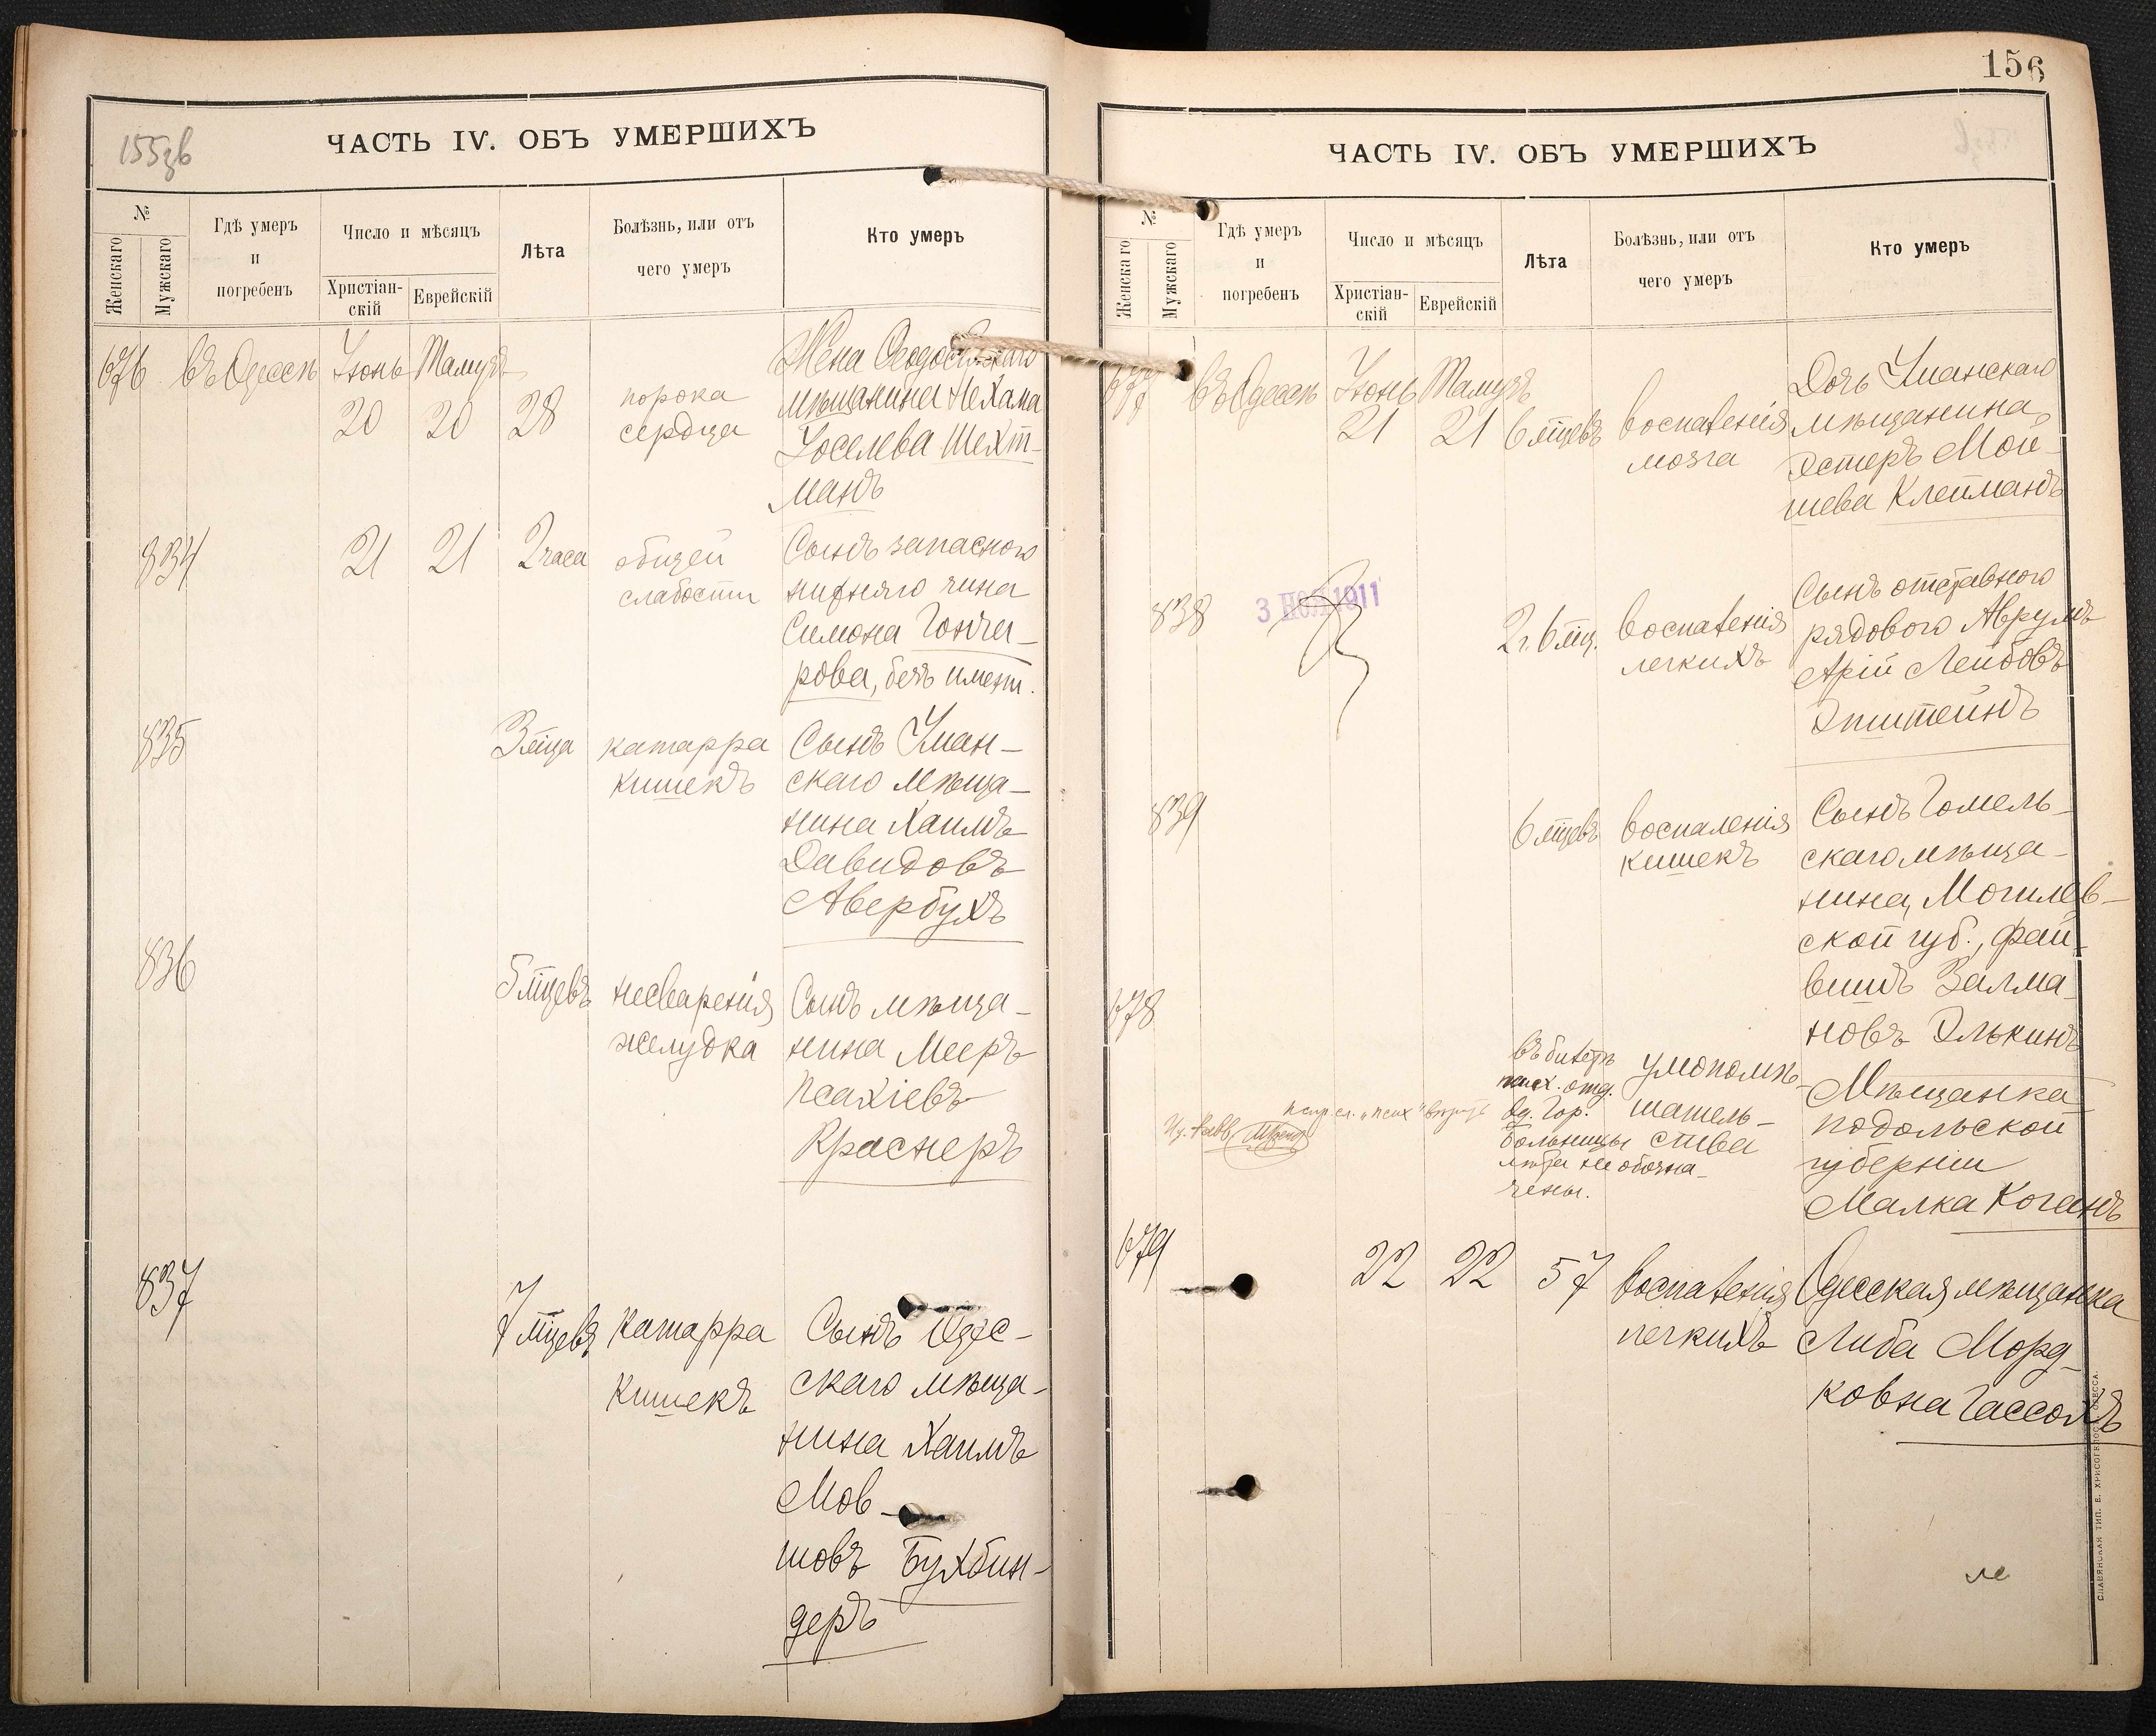 155зв
ЧАСТЬ IV. ОБЪ УМЕРШИХЪ
№
Женскаго
Мужскаго
Гдѣ умеръ
и
погребенъ
Число и мѣсяцъ
Христіан-
скій
Еврейскій
Лѣта
Болѣзнь, или отъ
чего умеръ
Кто умеръ
676 въ Одессѣ Іюнь Тамузъ
20 20 28
порока
сердца
Жена Ѳеодосійскаго
мѣщанина Нехама
Іоселева Шехт-
манъ
834 21 21 2 часа
общей
слабости
Сынъ запасного
нижняго чина
Симона Гонча-
рова, безъ имени.
835 3 мца
катарра
кишекъ
Сынъ Уман-
скаго мѣща-
нина Хаимъ
Давидовъ
Авербухъ
836 5 мцевъ
несваренія
желудка
Сынъ мѣща-
нина Мееръ
Псахіевъ
Краснеръ
837 7 мцевъ
катарра
кишекъ
Сынъ Одес-
скаго мѣща-
нина Хаимъ
Мов-
шовъ Бухбин-
деръ
156
ЧАСТЬ IV. ОБЪ УМЕРШИХЪ
№
Женскаго
Мужскаго
Гдѣ умеръ
и
погребенъ
Число и мѣсяцъ
Христіан-
скій
Еврейскій
Лѣта
Болѣзнь, или отъ
чего умеръ
Кто умеръ
677 въ Одессѣ Іюнь Тамузъ
21 21 6 мцевъ
воспаленія
мозга
Дочь Уманскаго
мѣщанина,
Эстеръ Мой-
шева Клейманъ
838 3 1911
2 г. 6 мц.
воспаленія
легкихъ
Сынъ отставного
рядового Аврумъ
Арій Лейбовъ
Эпштейнъ
839 6 мцевъ
воспаленія
кишекъ
Сынъ Гомель-
скаго мѣща-
нина, Могилев-
ской губ., Фай-
вишъ Залма-
новъ Элькинъ
678
въ билетѣ
псих. отд.
Од. Гор.
больницы
лѣта не обозна-
чены.
умопомѣ-
шатель-
ства
Мѣщанка
Подольской
губерніи
Малка Коганъ
679 22 22 57
воспаленія
легкихъ
Одесская мѣщанка
Либа Морд-
ковна Гассохъ
СЛАВЯНСКАЯ ТИП. Е. ХРИСОГЕЛОСЪ ОДЕССА.